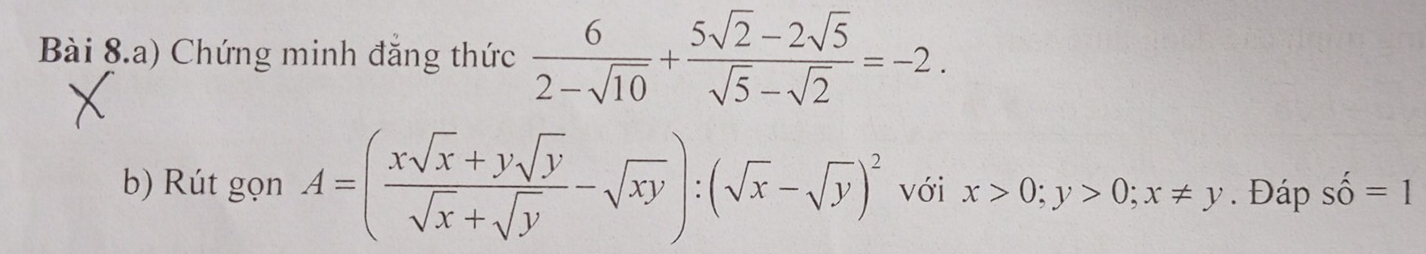 Bài 8.a) Chứng minh đẳng thức \frac{6}{2-\sqrt{10}}+\frac{5\sqrt{2}-2\sqrt{5}}{\sqrt{5}-\sqrt{2}}=-2.
X
b) Rút gọn A=\left(\frac{x\sqrt{x}+y\sqrt{y}}{\sqrt{x}+\sqrt{y}}-\sqrt{xy}\right):\left(\sqrt{x}-\sqrt{y}\right)^2 với x>0; y>0; x≠y. Đáp số = 1